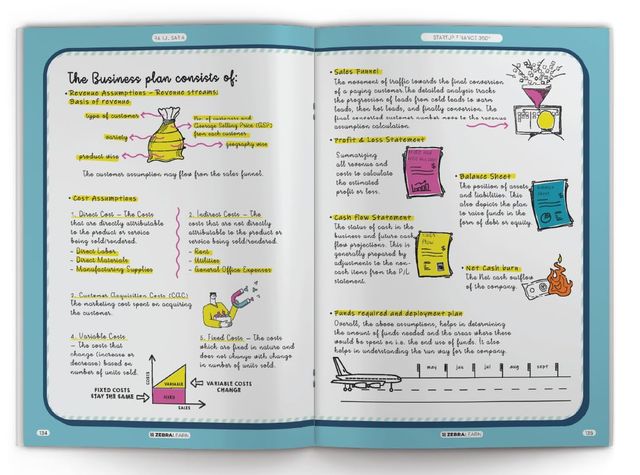 STARTUP FINANCE 360°
The Business plan consists of:
• Revenue Assumptions - Revenue streams;
Basis of revenue
type of customer
No. of customers and
Average Selling Price (ASP)
from each customer
variety
geography wise
product wise
The customer assumption may flow from the sales funnel.
• Cost Assumptions
1. Direct Cost - The Costs
that are directly attributable
to the product or service
being sold/rendered.
- Direct Labor
- Direct Materials
- Manufacturing Supplies
2. Indirect Costs - The
costs that are not directly
attributable to the product or
service being sold/rendered.
- Rent
- Utilities
- General Office Expenses
3. Customer Acquisition Costs (CAC)
The marketing cost spent on acquiring
the customer.
4. Variable Costs
- The costs that
change (increase or
decrease) based on
number of units sold.
5. Fixed Costs - The costs
which are fixed in nature and
does not change with change
in number of units sold.
COSTS
VARIABLE
FIXED
SALES
FIXED COSTS
STAY THE SAME
VARIABLE COSTS
CHANGE
134
ZEBRA LEARN
• Sales Funnel
The movement of traffic towards the final conversion
of a paying customer. The detailed analysis tracks
the progression of leads from cold leads to warm
leads, then hot leads, and finally conversion. The
final converted customer number goes to the revenue
assumption calculation.
• Profit & Loss Statement
Summarizing
all revenue and
costs to calculate
the estimated
profit or loss.
• Balance Sheet
The position of assets
and liabilities. This
also depicts the plan
to raise funds in the
form of debt or equity.
• Cash flow Statement
The status of cash in the
business and future cash
flow projections. This is
generally prepared by
adjustments to the non-
cash items from the P/L
statement.
• Net Cash burn
The Net cash outflow
of the company.
• Funds required and deployment plan
Overall, the above assumptions, helps in determining
the amount of funds needed and the areas where these
would be spent on i.e. the end use of funds. It also
helps in understanding the run way for the company.
may
jun
jul
aug
sept
ZEBRA LEARN
135